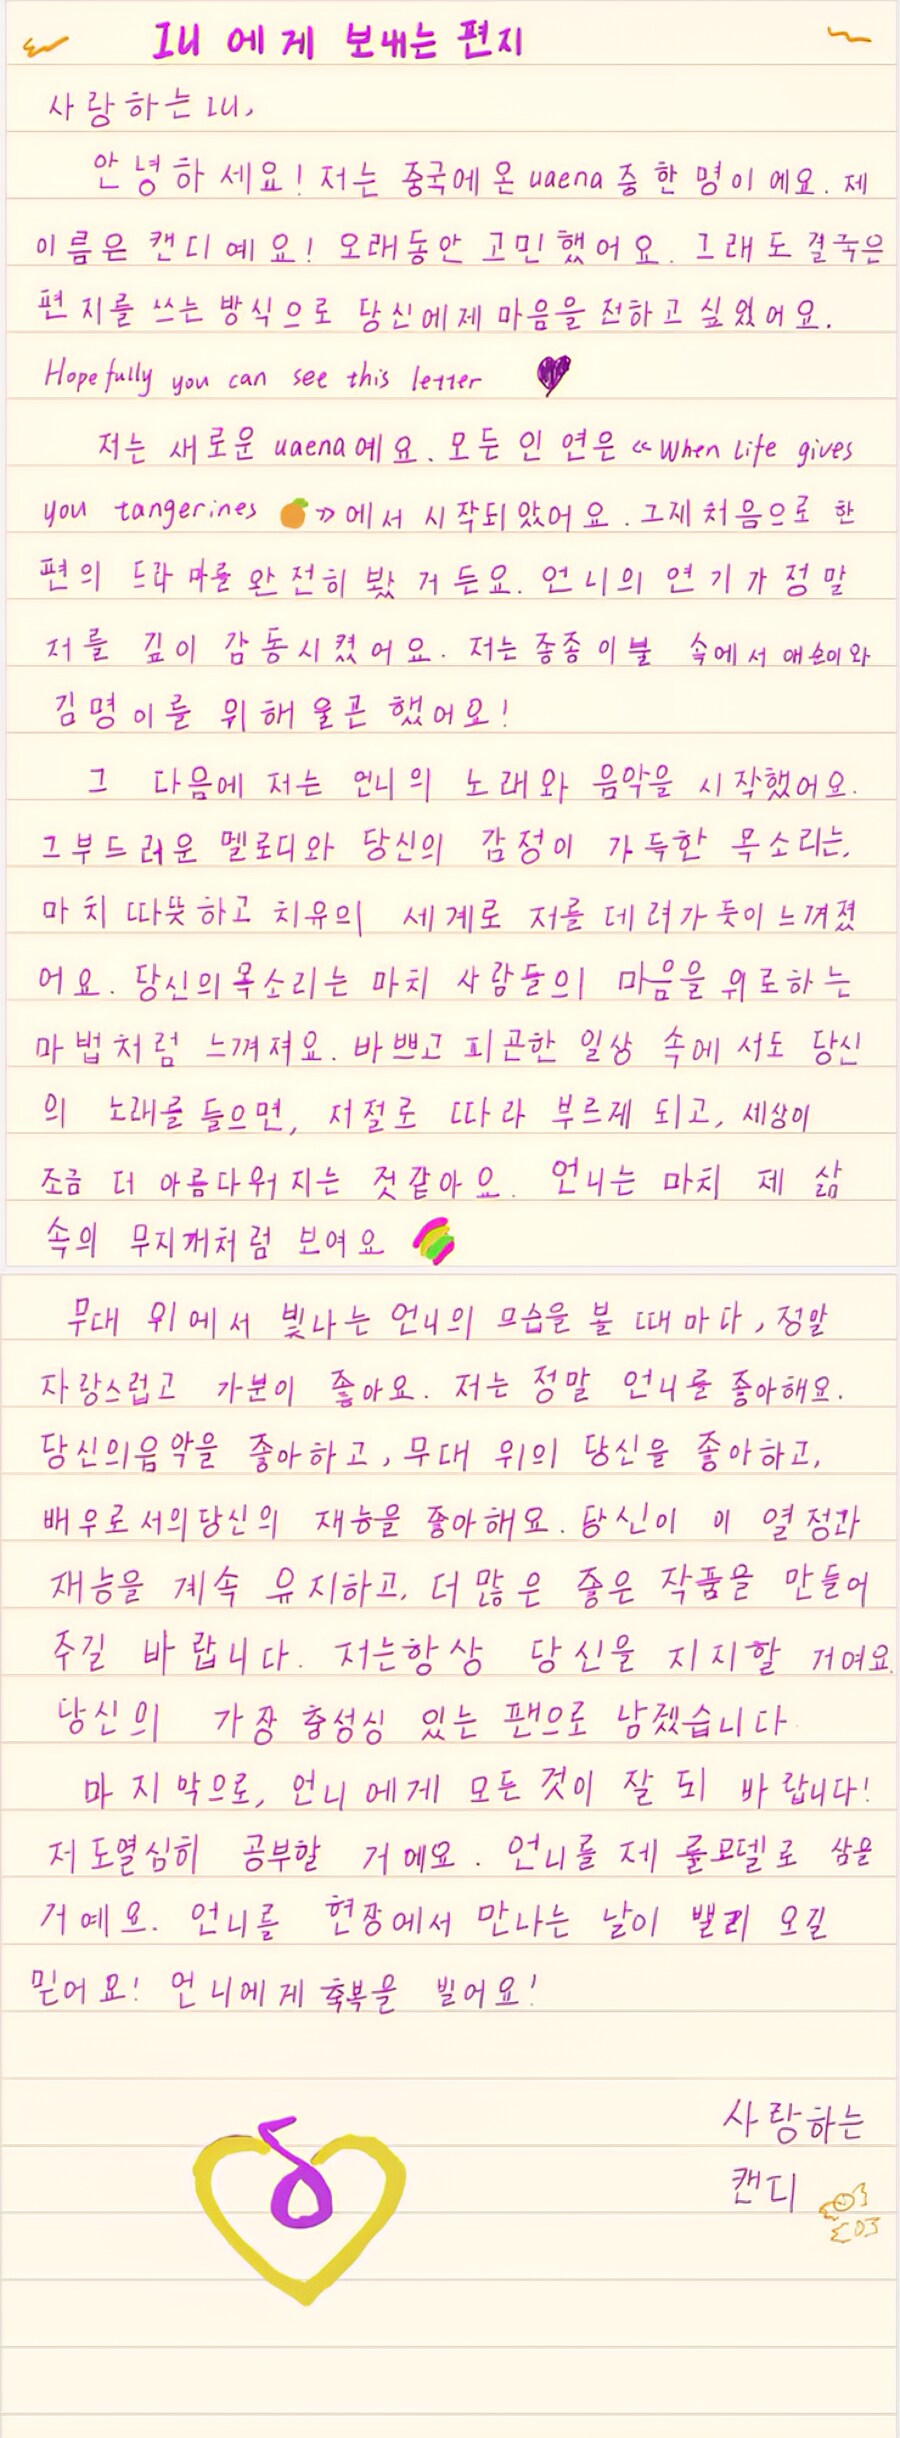 IU 에게 보내는 편지
사랑하는 IU,
안녕하세요! 저는 중국에 온 uaena 중 한 명이에요. 제
이름은 캔디예요! 오래동안 고민했어요. 그래도 결국은
편지를 쓰는 방식으로 당신에게 마음을 전하고 싶었어요.
Hopefully you can see this letter
저는 새로운 uaena예요. 모든 인연은 《When Life gives
you tangerines 》에서 시작되았어요. 그제 처음으로 한
편의 드라마를 완전히 봤거든요. 언니의 연기가 정말
저를 깊이 감동시켰어요. 저는 종종 이불 속에서 애순이와
김명이를 위해 울곤 했어요!
그 다음에 저는 언니의 노래와 음악을 시작했어요.
그 부드러운 멜로디와 당신의 감정이 가득한 목소리는,
마치 따뜻하고 치유의 세계로 저를 데려가듯이 느껴졌
어요. 당신의 목소리는 마치 사람들의 마음을 위로하는
마법처럼 느껴져요. 바쁘고 피곤한 일상 속에서도 당신
의 노래를 들으면, 저절로 따라 부르게 되고, 세상이
조금 더 아름다워지는 것같아요. 언니는 마치 제 삶
속의 무지개처럼 보여요
무대 위에서 빛나는 언니의 모습을 볼 때마다, 정말
자랑스럽고 가분이 좋아요. 저는 정말 언니를 좋아해요.
당신의음악을 좋아하고, 무대 위의 당신을 좋아하고,
배우로서의당신의 재능을 좋아해요. 당신이 이 열정과
재능을 계속 유지하고, 더 많은 좋은 작품을 만들어
주길 바랍니다. 저는항상 당신을 지지할 거여요.
당신의 가장 충성심 있는 팬으로 남겠습니다
마지막으로, 언니에게 모든 것이 잘 되 바랍니다!
저도열심히 공부할 거예요. 언니를 제 롤모델로 삼을
거예요. 언니를 현장에서 만나는 날이 밸리 오길
믿어요! 언니에게 축복을 빌어요!
사랑하는
캔디